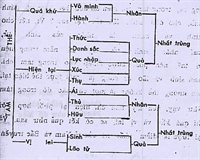 Quá khứ
Vô minh
Hành
Nhân
Nhất trùng
Hiện tại
Thức
Danh sắc
Lục nhập
Xúc
Thụ
Quả
Ái
Thủ
Hữu
Nhân
Nhất trùng
Vị lai
Sinh
Lão tử
Quả